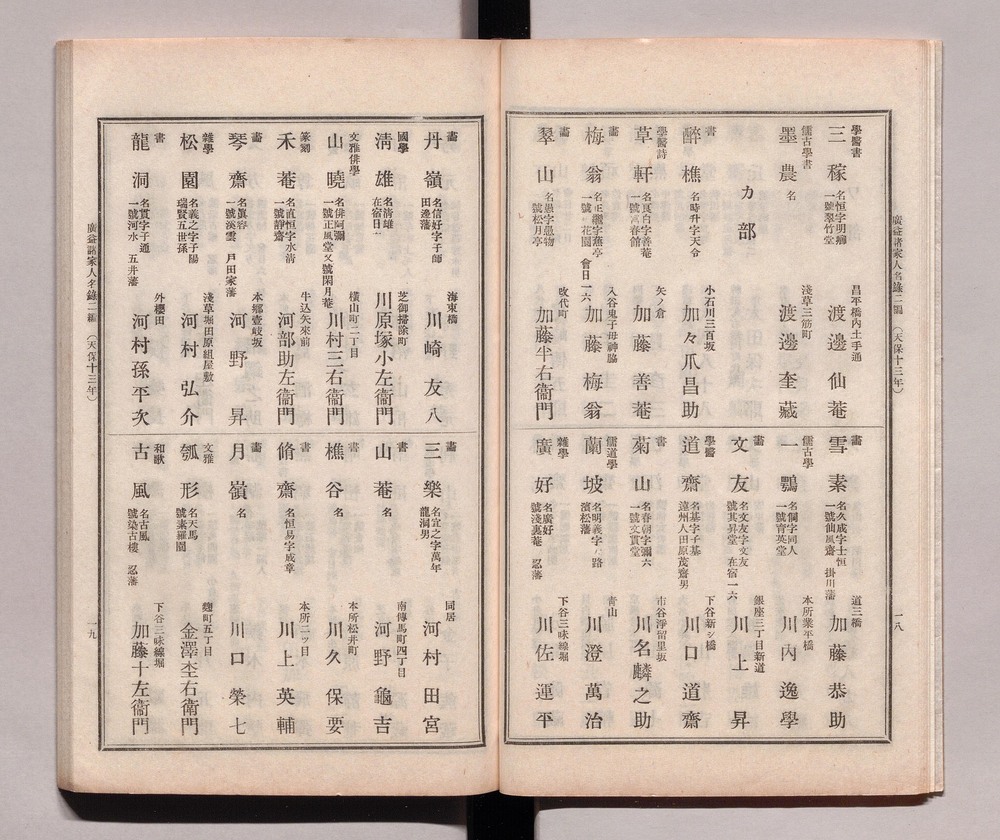 廣益諸家人名錄二編 (天保十三年)
一八
學醫書
三稼
名恒字明卿
一號翠竹堂
昌平橋內土手通
渡邊仙菴
儒古學書
墨農
名
淺草三筋町
渡邊奎藏
カ部
書
醉樵
名時升字天令
小石川三百坂
加々爪昌助
學醫詩
草軒
名眞白字善菴
矢ノ倉
加藤善菴
畵
梅翁
會日一六
入谷鬼子母神脇
加藤梅翁
畵
翠山
名愚字愚物
一號松月亭
改代町
加藤半右衞門
畵
雪素
名久成字士恒
一號仙風齋 掛川藩
道三橋
加藤恭助
儒古學
一鶚
名侗字同人
一號育英堂
本所業平橋
川內逸學
畵
文友
名文友字文友
一號其昇堂 在宿一六
銀座三丁目新道
川上昇
學醫
道齋
名基字子基
遠州人田原茂齋男
下谷新シ橋
川口道齋
書
菊山
名春朝字彌六
一號文貫堂
市谷淨留里坂
川名麟之助
儒道學
蘭坡
濱松藩
青山
川澄萬治
雜學
廣好
名廣好
一號淺裏菴 忍藩
下谷三味線堀
川佐運平
畵
丹嶺
名信好字子師
田邊藩
海東橋
川崎友八
國學
淸雄
名淸雄
芝御掃除町
川原塚小左衞門
文雅俳學
山曉
名俳阿彌
一號正風堂又號閑月菴
橫山町二丁目
川村三右衞門
篆刻
禾菴
名直恒字水淸
一號靜齋
牛込矢來前
河部助左衞門
畵
琴齋
名眞容
一號溪雲 戶田家藩
本鄉壹岐坂
河野昇
雜學
松園
名義之字子陽
瑞賢五世孫
淺草堀田原組屋敷
河村弘介
書
龍洞
名貫字子通
一號河水 五井藩
外櫻田
河村孫平次
畵
三樂
名宜之字萬年
龍洞男
同居
河村田宮
書
山菴
名
南傳馬町四丁目
河野龜吉
書
樵谷
名
本所松井町
川久保要
書
脩齋
名恒易字成章
本所二ツ目
川上英輔
畵
月嶺
名
川口榮七
文雅
瓠形
名天馬
號素羅閣
麴町五丁目
金澤杢右衛門
和歌
古風
名古風
號染古樓 忍藩
下谷三味線堀
加藤十左衞門
廣益諸家人名錄二編 (天保十三年)
一九